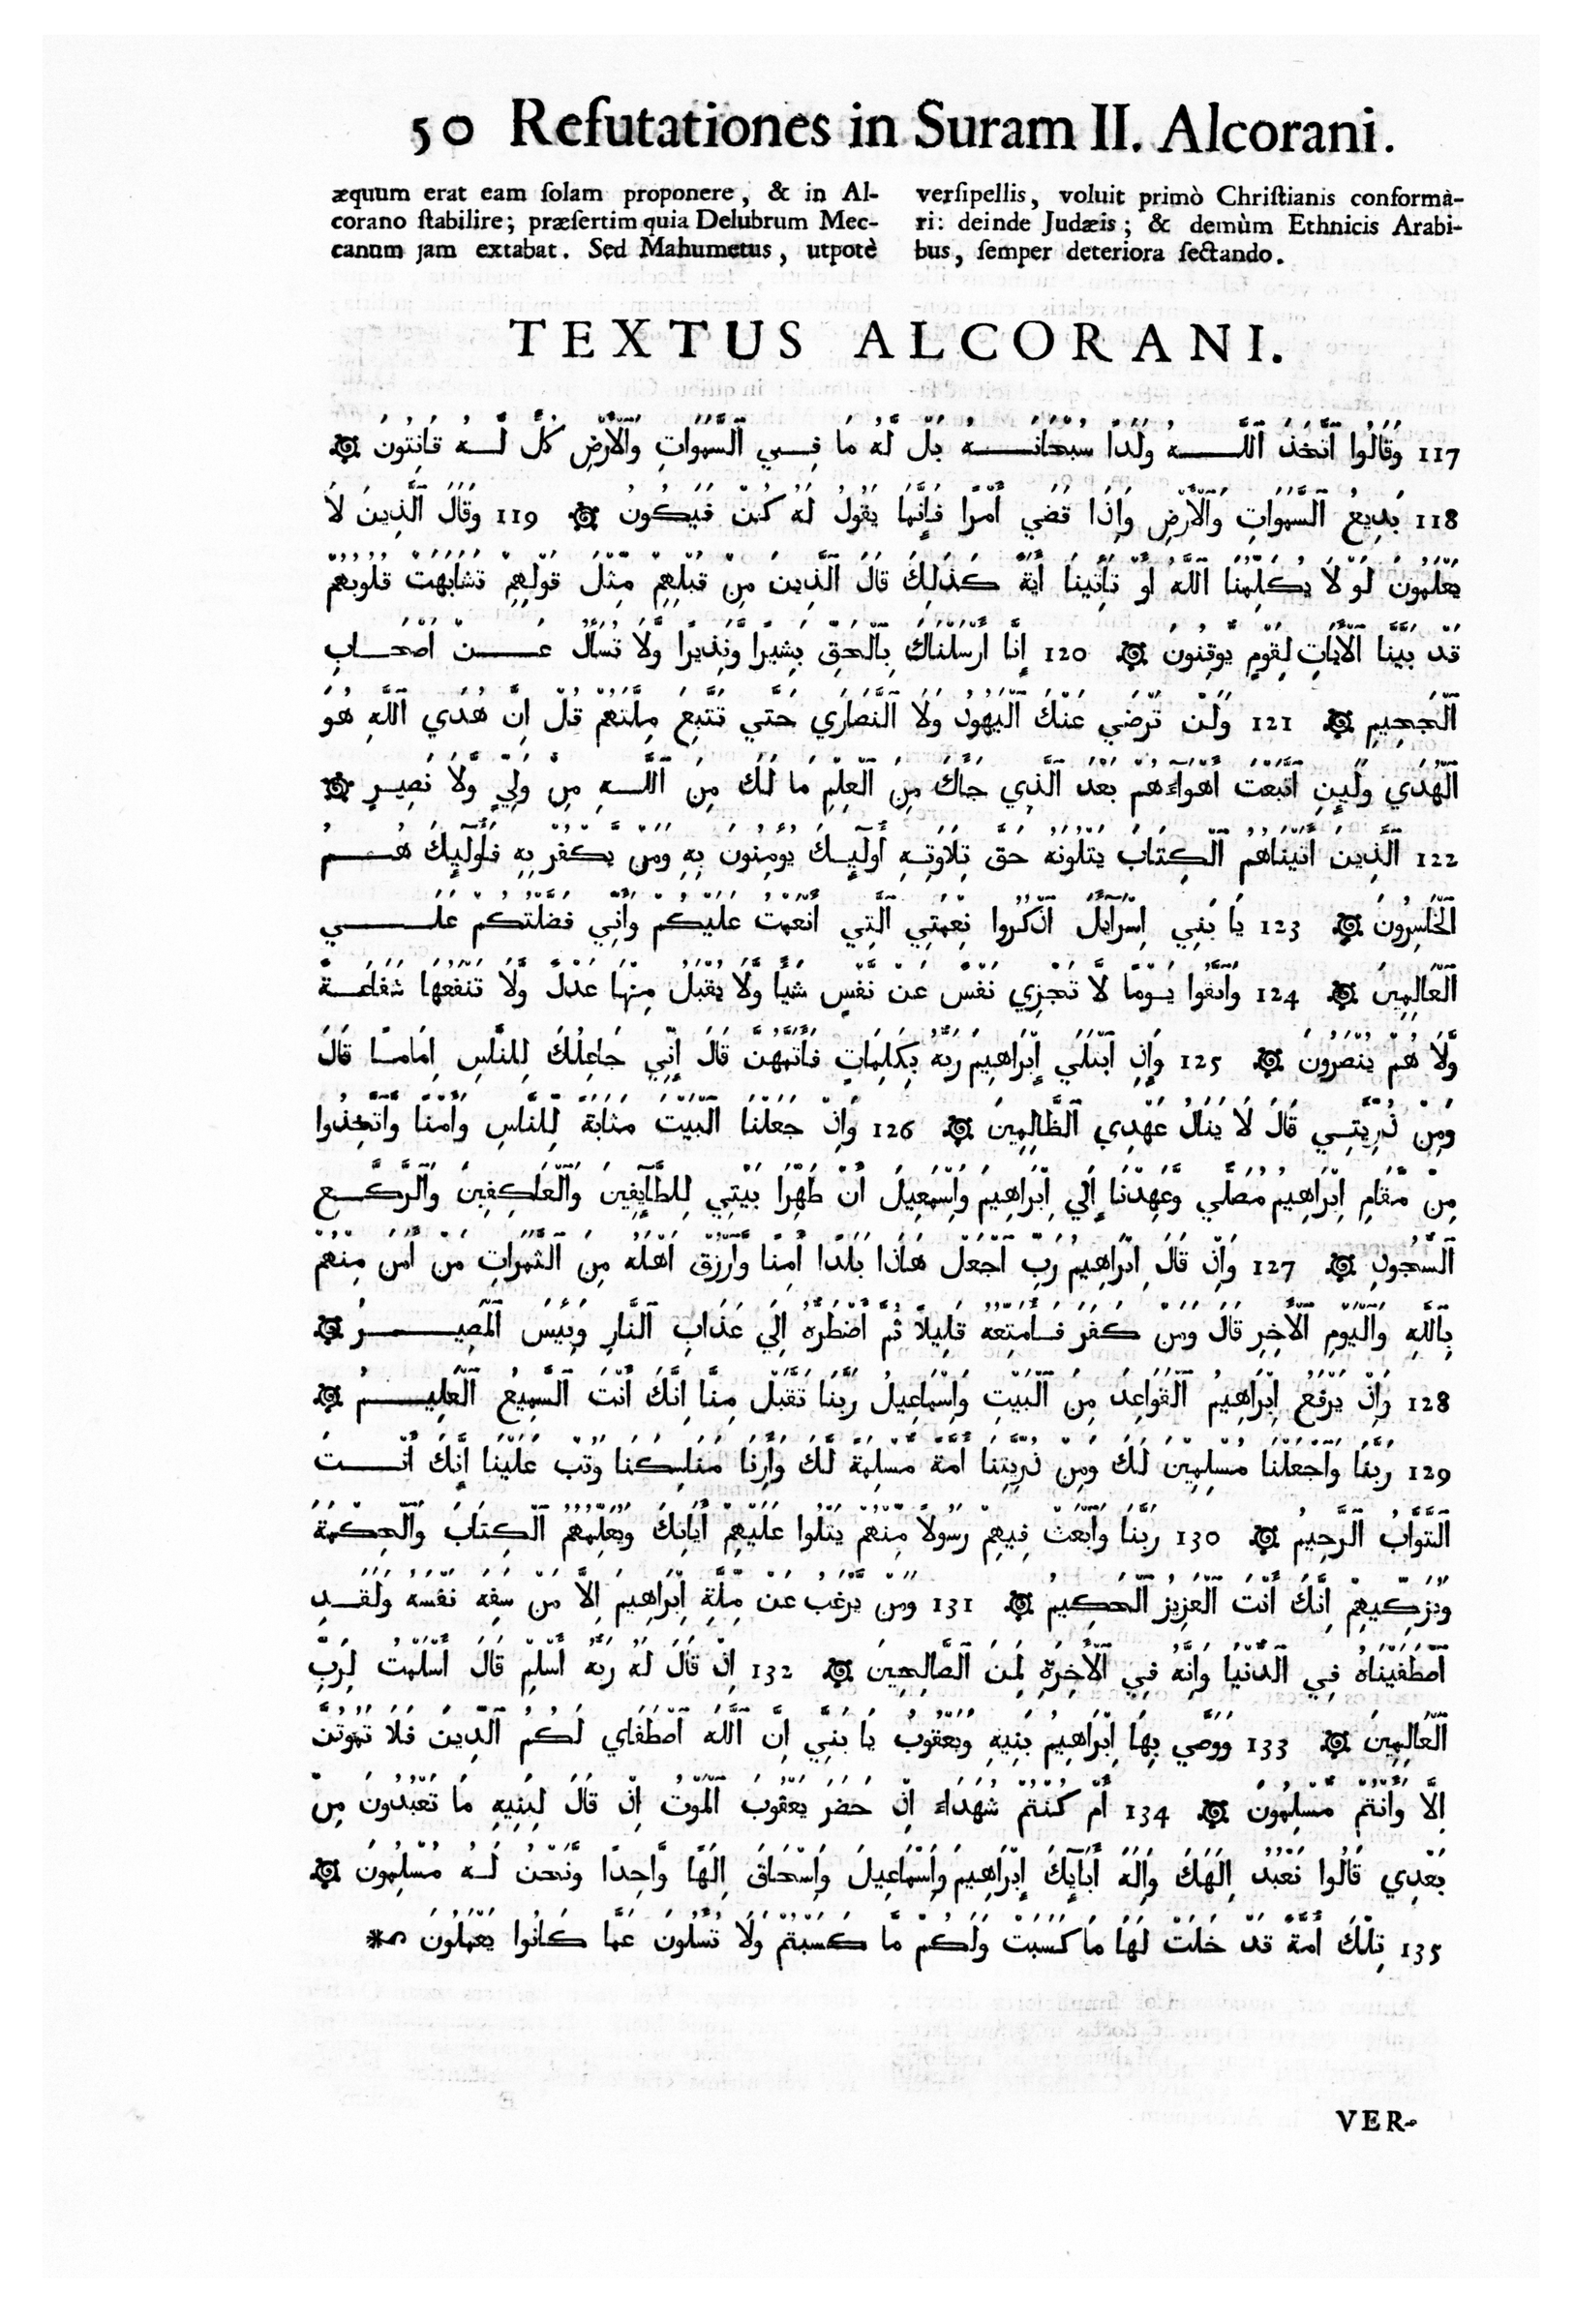 50 Refutationes in Suram II. Alcorani.
æquum erat eam ſolam proponere, & in Al-
corano ſtabilire; præſertim quia Delubrum Mec-
canum jam extabat. Sed Mahumetus, utpotè
verſipellis, voluit primò Chriſtianis conformà-
ri: deinde Judæis; & demùm Ethnicis Arabi-
bus, ſemper deteriora ſectando.
TEXTUS ALCORANI.
117 وَقَالُوا ٱتَّخَذَ ٱللَّهُ وَلَدًا سُبْحَانَهُ بَلْ لَّهُ مَا فِي ٱلسَّمَوَاتِ وَٱلْأَرْضِ كُلٌّ لَّهُ قَانِتُونَ
118 بَدِيعُ ٱلسَّمَوَاتِ وَٱلْأَرْضِ وَإِذَا قَضَي أَمْرًا فَإِنَّمَا يَقُولُ لَهُ كُنْ فَيَكُونُ 119 وَقَالَ ٱلَّذِينَ لَا
يَعْلَمُونَ لَوْ لَا يُكَلِّمُنَا ٱللَّهُ أَوْ تَأْتِينَا أَيَةٌ كَذَلِكَ قَالَ ٱلَّذِينَ مِنْ قَبْلِهِمْ مِّثْلَ قَوْلِهِمْ تَشَابَهَتْ قُلُوبُهُمْ
قَدْ بَيَّنَّا ٱلْأَيَاتِ لِقَوْمٍ يُوقِنُونَ 120 إِنَّا أَرْسَلْنَاكَ بِٱلْحَقِّ بَشِيرًا وَّنَذِيرًا وَّلَا تُسْأَلُ عَنْ أَصْحَابِ
ٱلْجَحِيمِ 121 وَلَنْ تَرْضَي عَنْكَ ٱلْيَهُودُ وَلَا ٱلنَّصَارَي حَتَّي تَتَّبِعَ مِلَّتَهُمْ قُلْ إِنَّ هُدَي ٱللَّهِ هُوَ
ٱلْهُدَي وَلَيِنِ ٱتَّبَعْتَ أَهْوَآءَهُمْ بَعْدَ ٱلَّذِي جَاكَ مِنَ ٱلْعِلْمِ مَا لَكَ مِنَ ٱللَّهِ مِنْ وَلِيٍّ وَّلَا نَصِيرٍ
122 ٱلَّذِينَ أَتَيْنَاهُمُ ٱلْكِتَابَ يَتْلُونَهُ حَقَّ تِلَاوَتِهِ أُولَيِكَ يُومِنُونَ بِهِ وَمَنْ يَّكْفُرْ بِهِ فَأُولَيِكَ هُمُ
ٱلْخَاسِرُونَ 123 يَا بَنِي إِسْرَايِلَ ٱذْكُرُوا نِعْمَتِي ٱلَّتِي أَنْعَمْتُ عَلَيْكُمْ وَأَنِّي فَضَّلْتُكُمْ عَلَي
ٱلْعَالَمِينَ 124 وَٱتَّقُوا يَوْمًا لَّا تَجْزِي نَفْسٌ عَنْ نَّفْسٍ شَيْأً وَّلَا يُقْبَلُ مِنْهَا عَدْلٌ وَّلَا تَنْفَعُهَا شَفَاعَةٌ
وَّلَا هُمْ يُنْصَرُونَ 125 وَإِذِ ٱبْتَلَي إِبْرَاهِيمَ رَبُّهُ بِكَلِمَاتٍ فَأَتَمَّهُنَّ قَالَ إِنِّي جَاعِلُكَ لِلنَّاسِ إِمَامًا قَالَ
وَمِنْ ذُرِّيَّتِي قَالَ لَا يَنَالُ عَهْدِي ٱلظَّالِمِينَ 126 وَإِذْ جَعَلْنَا ٱلْبَيْتَ مَثَابَةً لِّلنَّاسِ وَأَمْنًا وَّٱتَّخِذُوا
مِنْ مَّقَامِ إِبْرَاهِيمَ مُصَلَّي وَّعَهِدْنَا إِلَي إِبْرَاهِيمَ وَإِسْمَعِيلَ أَنْ طَهِّرَا بَيْتِي لِلطَّآيِفِينَ وَٱلْعَاكِفِينَ وَٱلرُّكَّعِ
ٱلسُّجُودِ 127 وَإِذْ قَالَ إِبْرَاهِيمُ رَبِّ ٱجْعَلْ هَاذَا بَلَدًا أَمِنًا وَّٱرْزُقْ أَهْلَهُ مِنَ ٱلثَّمَرَاتِ مَنْ أَمَنَ مِنْهُمْ
بِٱللَّهِ وَٱلْيَوْمِ ٱلْأَخِرِ قَالَ وَمَنْ كَفَرَ فَأُمَتِّعُهُ قَلِيلًا ثُمَّ أَضْطَرُّهُ إِلَي عَذَابِ ٱلنَّارِ وَبِيْسَ ٱلْمَصِيرُ
128 وَإِذْ يَرْفَعُ إِبْرَاهِيمُ ٱلْقَوَاعِدَ مِنَ ٱلْبَيْتِ وَإِسْمَاعِيلُ رَبَّنَا تَقَبَّلْ مِنَّا إِنَّكَ أَنْتَ ٱلسَّمِيعُ ٱلْعَلِيمُ
129 رَبَّنَا وَٱجْعَلْنَا مُسْلِمِيْنَ لَكَ وَمِنْ ذُرِّيَّتِنَا أُمَّةً مُّسْلِمَةً لَّكَ وَأَرِنَا مَنَاسِكَنَا وَتُبْ عَلَيْنَا إِنَّكَ أَنْتَ
ٱلتَّوَّابُ ٱلرَّحِيمُ 130 رَبَّنَا وَٱبْعَثْ فِيهِمْ رَسُولًا مِّنْهُمْ يَتْلُوا عَلَيْهِمْ أَيَاتِكَ وَيُعَلِّمُهُمُ ٱلْكِتَابَ وَٱلْحِكْمَةَ
وَيُزَكِّيهِمْ إِنَّكَ أَنْتَ ٱلْعَزِيزُ ٱلْحَكِيمُ 131 وَمَنْ يَّرْغَبُ عَنْ مِّلَّةِ إِبْرَاهِيمَ إِلَّا مَنْ سَفِهَ نَفْسَهُ وَلَقَدِ
ٱصْطَفَيْنَاهُ فِي ٱلدُّنْيَا وَإِنَّهُ فِي ٱلْأَخِرَةِ لَمِنَ ٱلصَّالِحِينَ 132 إِذْ قَالَ لَهُ رَبُّهُ أَسْلِمْ قَالَ أَسْلَمْتُ لِرَبِّ
ٱلْعَالَمِينَ 133 وَوَصَّي بِهَا إِبْرَاهِيمُ بَنِيهِ وَيَعْقُوبُ يَا بَنِيَّ إِنَّ ٱللَّهَ ٱصْطَفَاي لَكُمُ ٱلدِّينَ فَلَا تَمُوتُنَّ
إِلَّا وَأَنْتُمْ مُّسْلِمُونَ 134 أَمْ كُنْتُمْ شُهَدَاءَ إِذْ حَضَرَ يَعْقُوبَ ٱلْمَوْتُ إِذْ قَالَ لِبَنِيهِ مَا تَعْبُدُونَ مِنْ
بَعْدِي قَالُوا نَعْبُدُ إِلَهَكَ وَإِلَهَ أَبَآيِكَ إِبْرَاهِيمَ وَإِسْمَاعِيلَ وَإِسْحَاقَ إِلَهًا وَّاحِدًا وَّنَحْنُ لَهُ مُسْلِمُونَ
135 تِلْكَ أُمَّةٌ قَدْ خَلَتْ لَهَا مَا كَسَبَتْ وَلَكُمْ مَّا كَسَبْتُمْ وَلَا تُسْلُونَ عَمَّا كَانُوا يَعْمَلُونَ
VER-